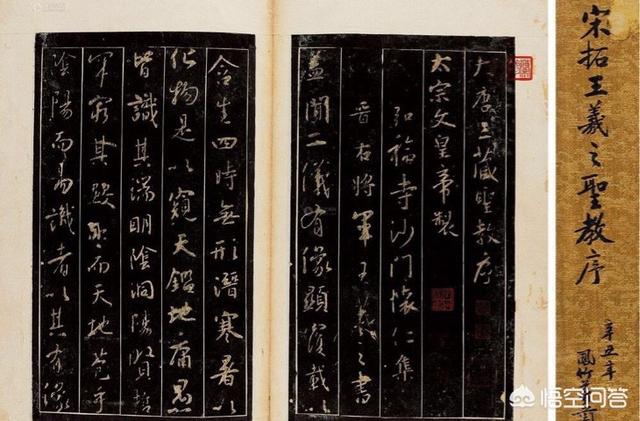 宋拓王羲之聖教序
辛丑年
大唐三藏聖教序
太宗文皇帝製
弘福寺沙門懷仁集
晉右將軍王羲之書
蓋聞二儀有像顯覆載以
含生四時無形潛寒暑以
化物是以窺天鑑地庸愚
皆識其端明陰洞陽賢哲
罕窮其數然而天地苞乎
陰陽而易識者以其有像
悟空问答